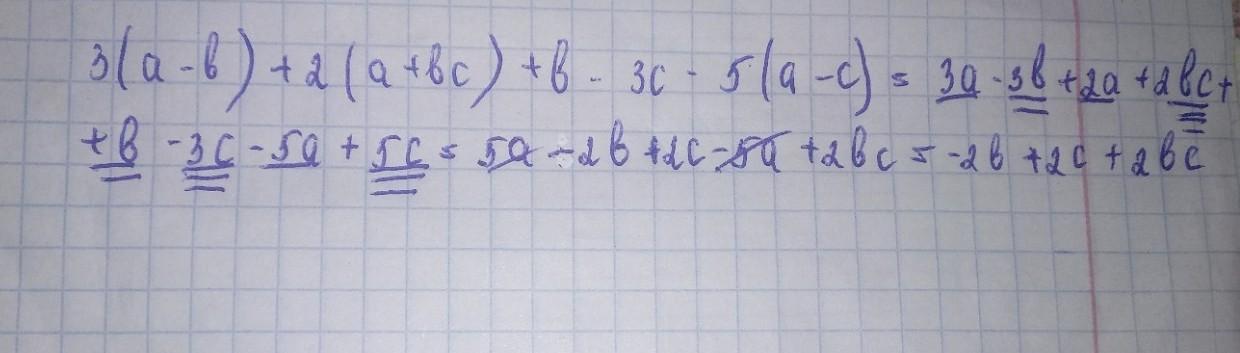 3(a-b)+2(a+bc)+b-3c-5(a-c)=3a-3b+2a+2bc+
+b-3c-5a+5c=5a-2b+2c-5a+2bc=-2b+2c+2bc